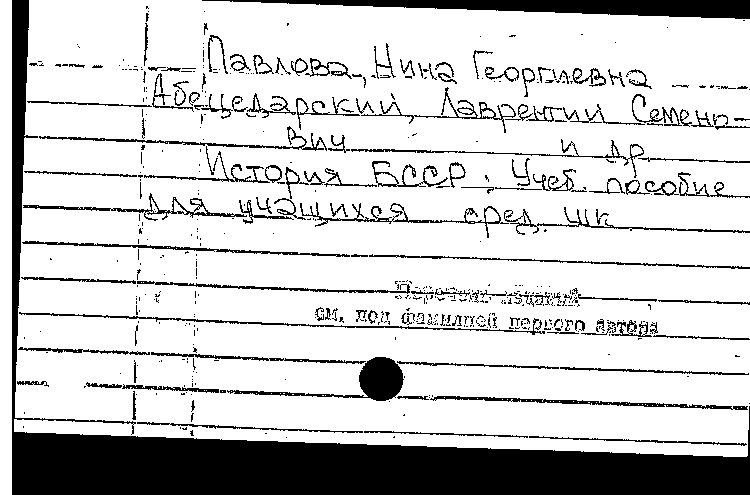 Павлова, Нина Георгиевна
Абецедарский, Лаврентий Семено-
вич и др.
История БССР : Учеб. пособие
для учащихся сред. шк.
Перечень изданий
см. под фамилией первого автора